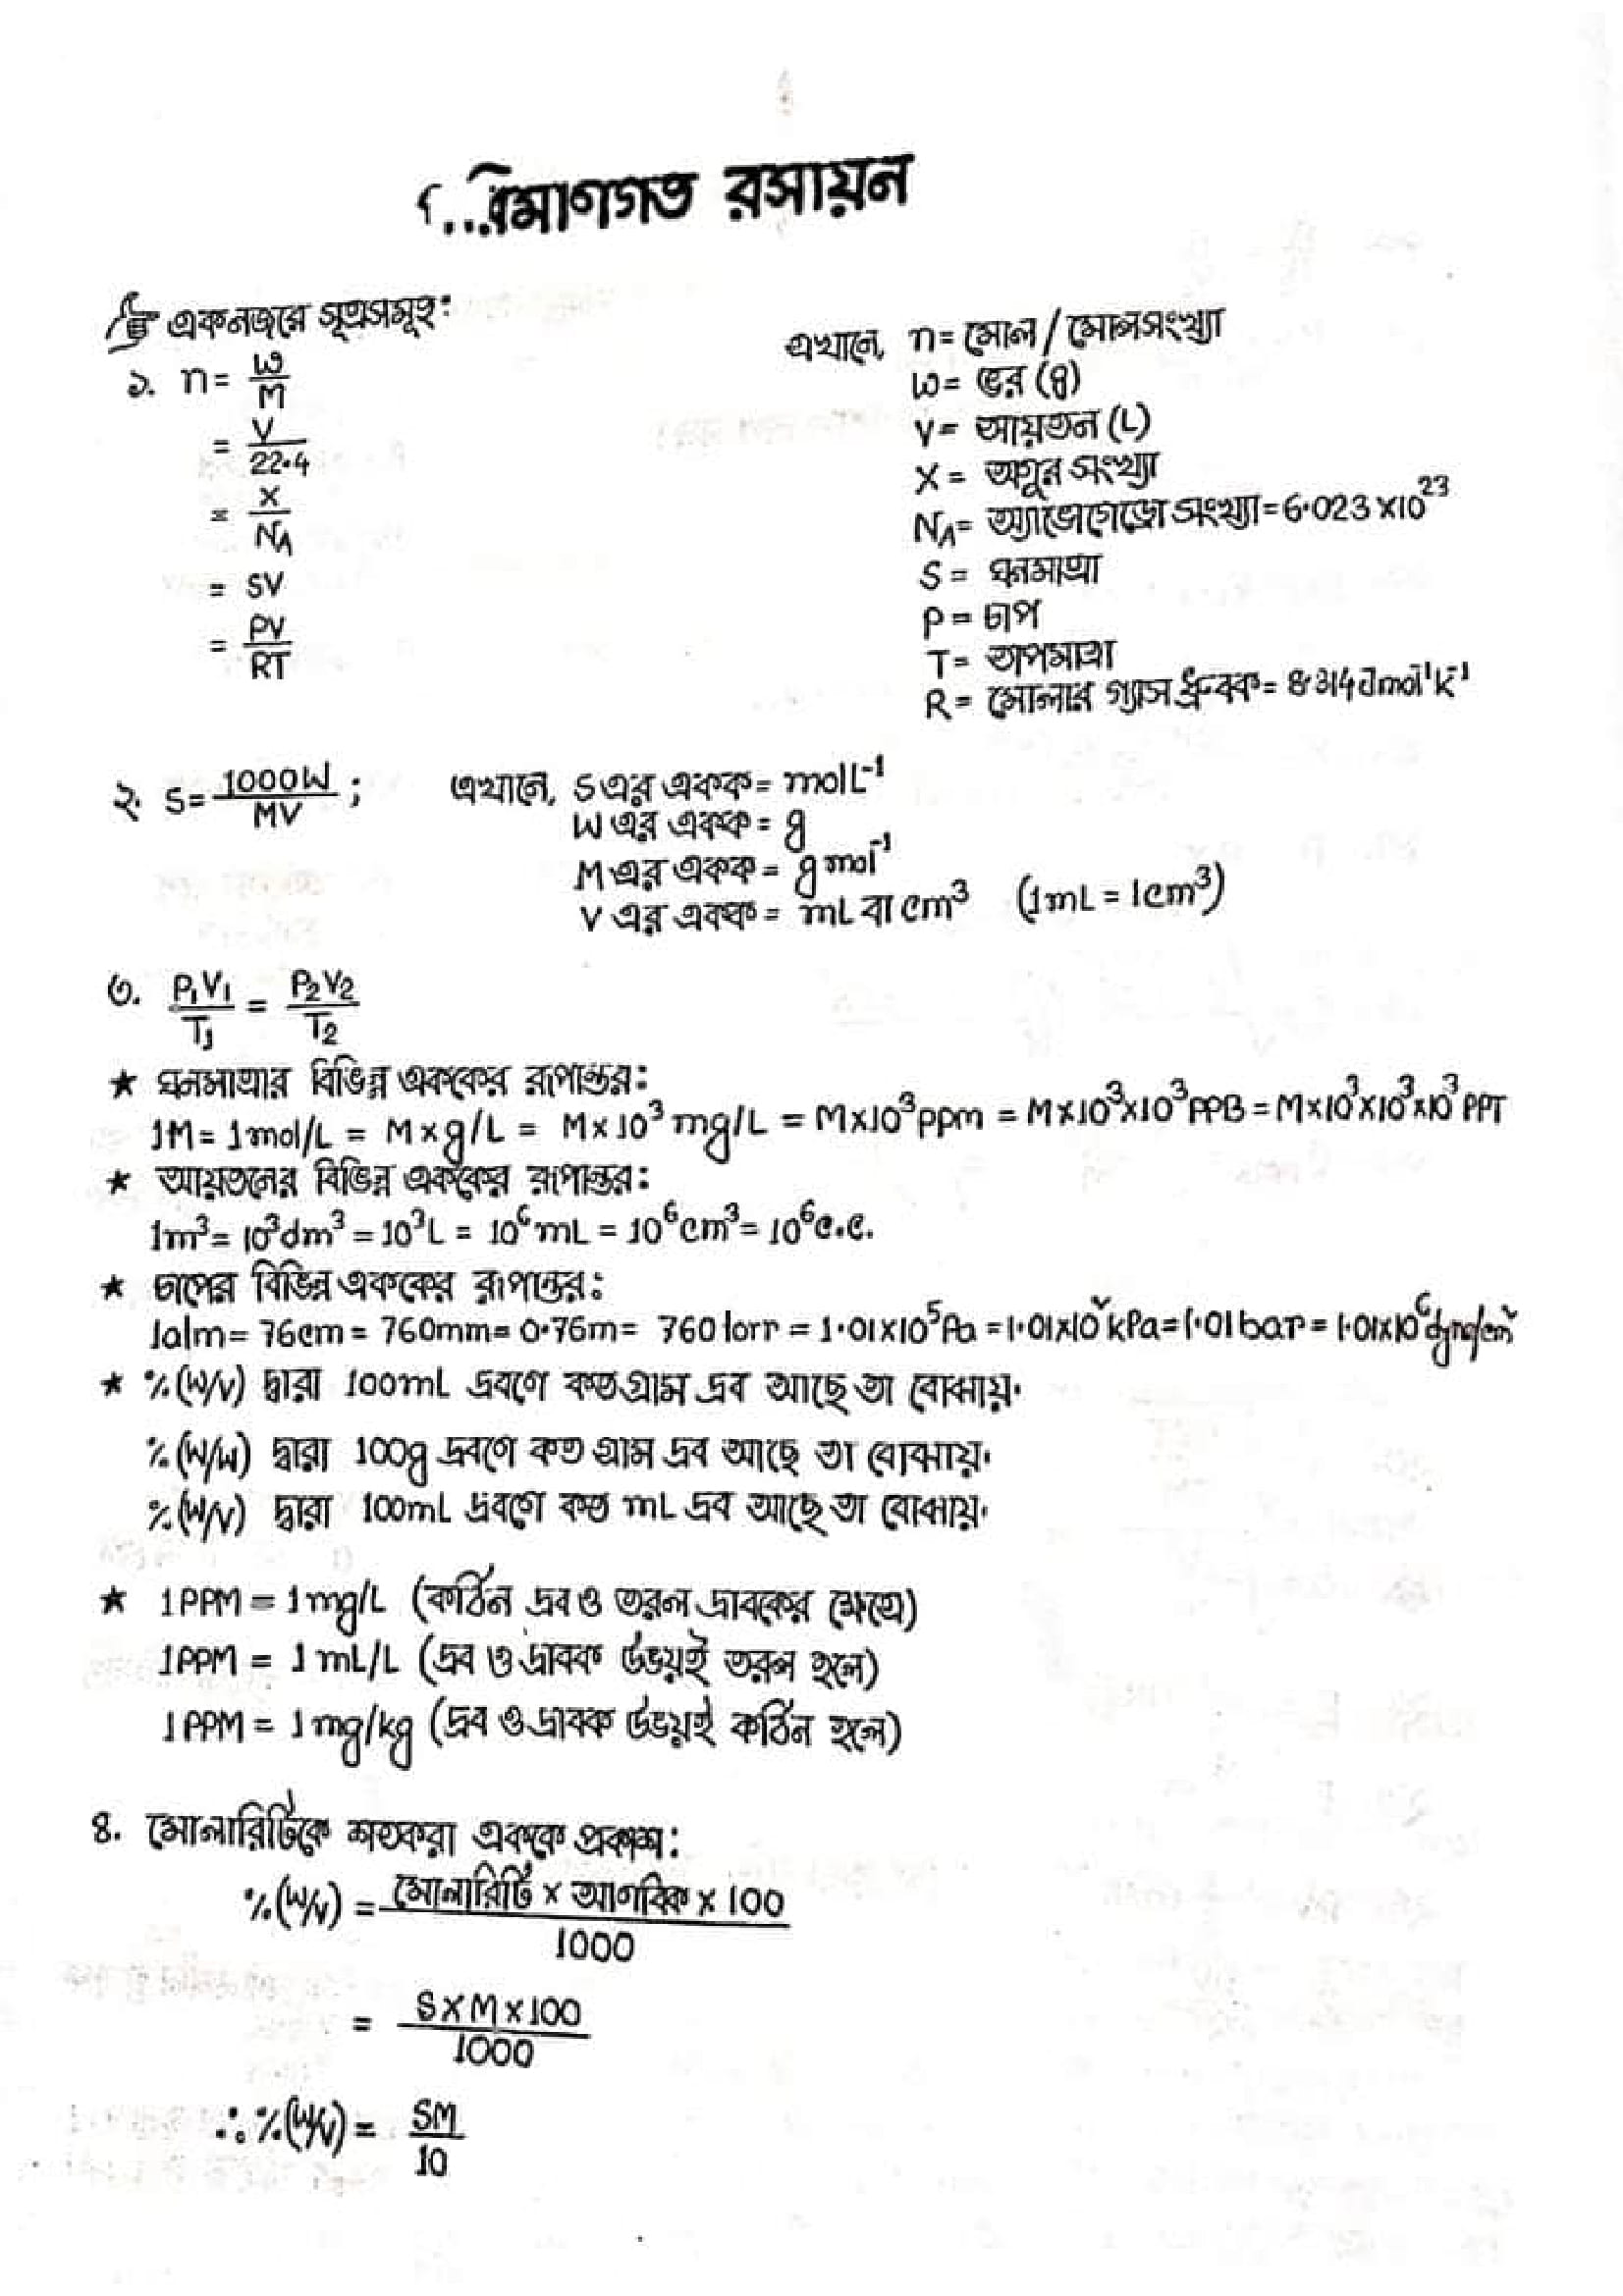 রিমাণগত রসায়ন
একনজরে সূত্রসমূহ:
১. n = W/M
= V/22.4
= X/NA
= SV
= PV/RT
এখানে, n = মোল / মোলসংখ্যা
W = ভর (g)
V = আয়তন (L)
X = অণুর সংখ্যা
NA = অ্যাভোগেড্রো সংখ্যা = 6.023 ×10²³
S = ঘনমাত্রা
P = চাপ
T = তাপমাত্রা
R = মোলার গ্যাস ধ্রুবক = 8.314 Jmol⁻¹k⁻¹
২. S = 1000W/MV ; এখানে, S এর একক = molL⁻¹
W এর একক = g
M এর একক = g mol⁻¹
V এর একক = mL বা cm³ (1mL = 1cm³)
৩. P₁V₁/T₁ = P₂V₂/T₂
★ ঘনমাত্রার বিভিন্ন এককের রূপান্তর:
1M = 1mol/L = M×g/L = M×10³ mg/L = M×10³ppm = M×10³×10³PPB = M×10³×10³×10³ PPT
★ আয়তনের বিভিন্ন এককের রূপান্তর:
1m³ = 10³dm³ = 10³L = 10⁶mL = 10⁶cm³ = 10⁶c.c.
★ চাপের বিভিন্ন এককের রূপান্তর:
1atm = 76cm = 760mm = 0.76m = 760 torr = 1.01×10⁵Pa = 1.01×10²kPa = 1.01bar = 1.01×10⁶dyne/cm²
★ %(W/V) দ্বারা 100mL দ্রবণে কত গ্রাম দ্রব আছে তা বোঝায়.
%(W/W) দ্বারা 100g দ্রবণে কত গ্রাম দ্রব আছে তা বোঝায়.
%(W/V) দ্বারা 100mL দ্রবণে কত mL দ্রব আছে তা বোঝায়.
★ 1PPM = 1mg/L (কঠিন দ্রব ও তরল দ্রাবকের ক্ষেত্রে)
1PPM = 1 mL/L (দ্রব ও দ্রাবক উভয়ই তরল হলে)
1PPM = 1mg/kg (দ্রব ও দ্রাবক উভয়ই কঠিন হলে)
৪. মোলারিটিকে শতকরা এককে প্রকাশ:
%(W/V) = মোলারিটি × আণবিক × 100/1000
= S×M×100/1000
∴ %(W/V) = SM/10